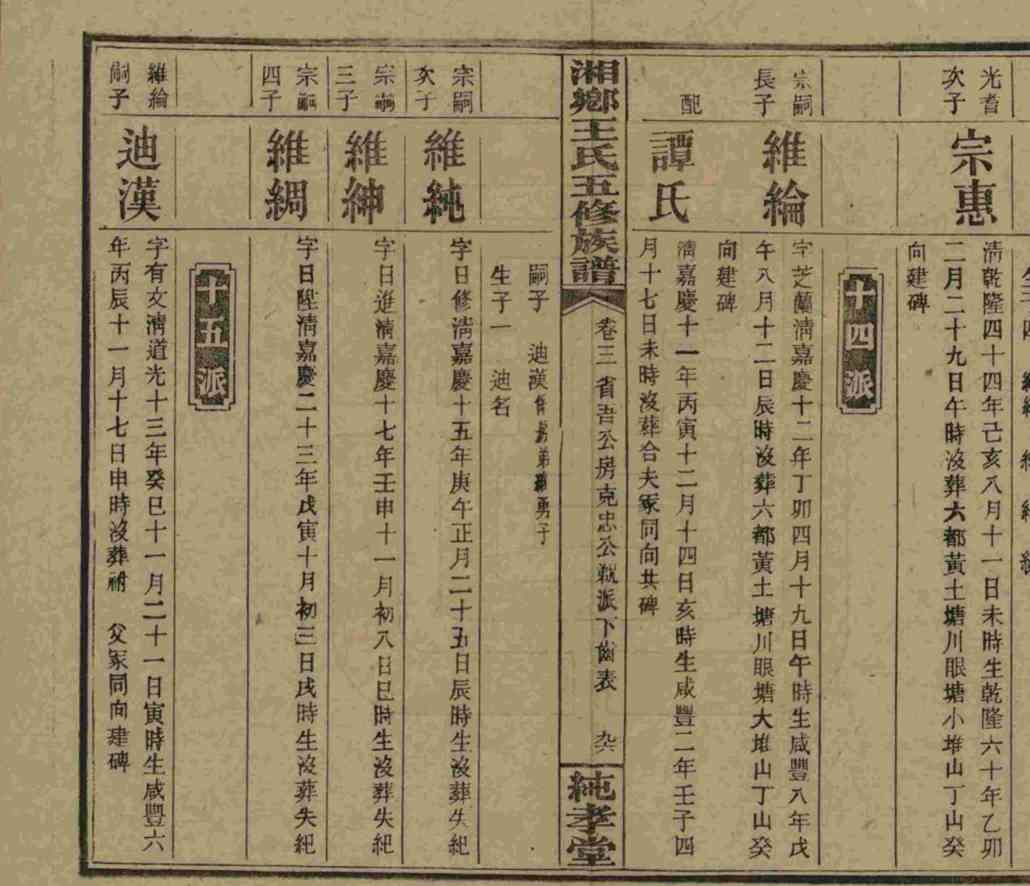 光耆
次子
宗惠
清乾隆四十四年己亥八月十一日未時生乾隆六十年乙卯
二月二十九日午時沒葬六都黃土塘川眼塘小堆山丁山癸
向建碑
十四派
宗嗣
長子
維綸
字芝蘭清嘉慶十二年丁卯四月十九日午時生咸豐八年戊
午八月十二日辰時沒葬六都黃土塘川眼塘大堆山丁山癸
向建碑
配
譚氏
清嘉慶十一年丙寅十二月十四日亥時生咸豐二年壬子四
月十七日未時沒葬合夫冢同向共碑
湘鄉王氏五修族譜
卷三 省吾公房克忠公 派下齒表
純孝堂
嗣子 迪漢 勇子
生子一 迪名
宗嗣
次子
維純
字日修清嘉慶十五年庚午正月二十五日辰時生沒葬失紀
宗嗣
三子
維紳
字日進清嘉慶十七年壬申十一月初八日巳時生沒葬失紀
宗嗣
四子
維綢
字日陞清嘉慶二十三年戊寅十月初三日戌時生沒葬失紀
十五派
維綸
嗣子
迪漢
字有文清道光十三年癸巳十一月二十一日寅時生咸豐六
年丙辰十一月十七日申時沒葬祔 父冢同向建碑